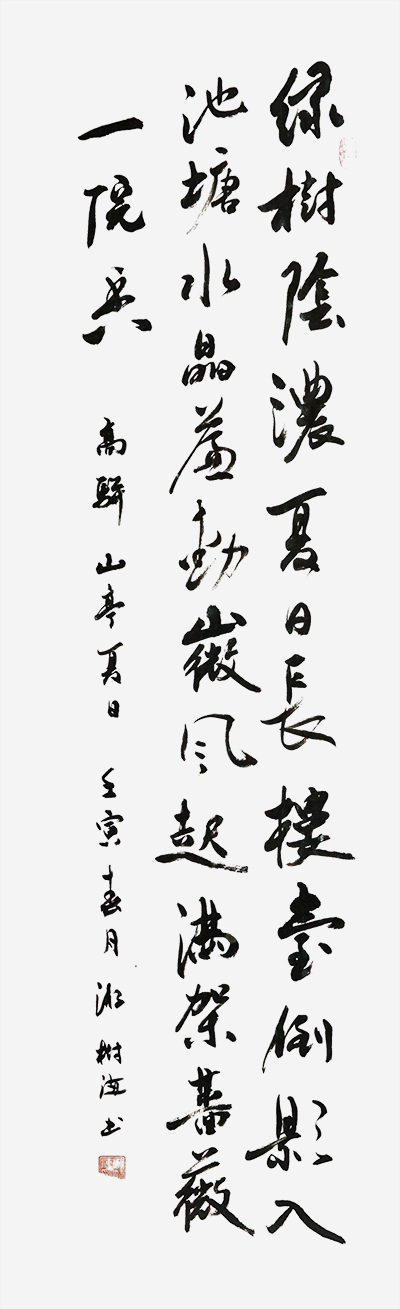 緑樹陰濃夏日長樓臺倒影入
池塘水晶簾動微風起滿架薔薇
一院香 高駢 山亭夏日 壬寅春月 樹海书